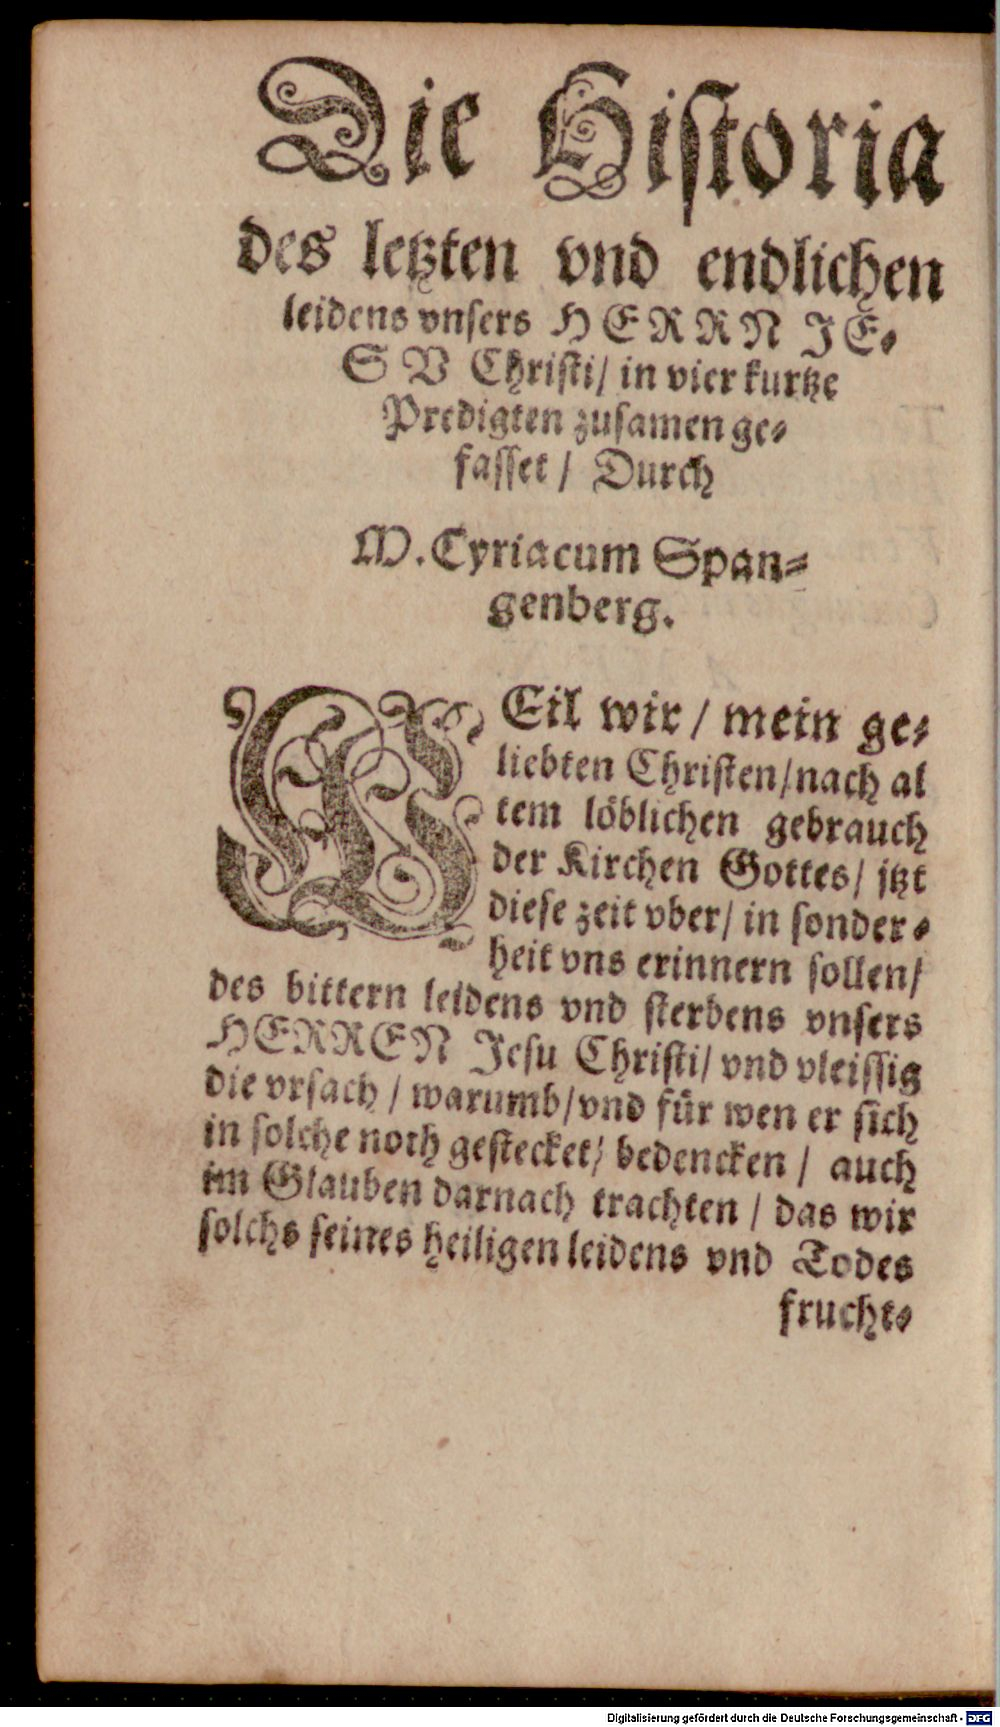 Die Hiſtoria
des letzten vnd endlichen
leidens vnſers HERRN JE-
SV Chriſti/ in vier kurtze
Predigten zuſamen ge-
faſſet/ Durch
M. Cyriacum Span-
genberg.
WEil wir/ mein ge-
liebten Chriſten/nach al
tem löblichen gebrauch
der Kirchen Gottes/ jtzt
dieſe zeit vber/ in ſonder-
heit vns erinnern ſollen/
des bittern leidens vnd ſterbens vnſers
HERREN Jeſu Chriſti/ vnd vleiſſig
die vrſach/ warumb/vnd für wen er ſich
in ſolche noth geſtecket/ bedencken/ auch
im Glauben darnach trachten/ das wir
ſolchs ſeines heiligen leidens vnd Todes
frucht-
Digitalisierung gefördert durch die Deutsche Forschungsgemeinschaft - DFG